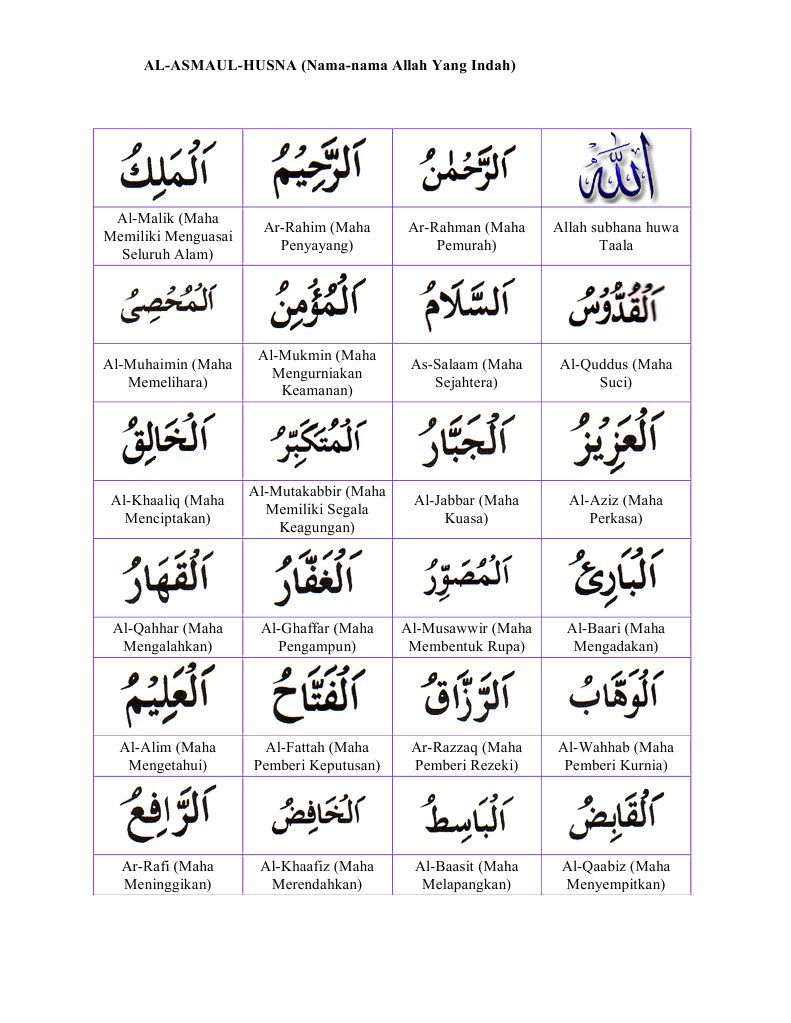 AL-ASMAUL-HUSNA (Nama-nama Allah Yang Indah)
الله
Allah subhana huwa
Taala
اَلرَّحْمٰنُ
Ar-Rahman (Maha
Pemurah)
اَلرَّحِيْمُ
Ar-Rahim (Maha
Penyayang)
اَلْمَلِكُ
Al-Malik (Maha
Memiliki Menguasai
Seluruh Alam)
اَلْقُدُّوْسُ
Al-Quddus (Maha
Suci)
اَلسَّلَامُ
As-Salaam (Maha
Sejahtera)
اَلْمُؤْمِنُ
Al-Mukmin (Maha
Mengurniakan
Keamanan)
اَلْمُحْصِىُ
Al-Muhaimin (Maha
Memelihara)
اَلْعَزِيْزُ
Al-Aziz (Maha
Perkasa)
اَلْجَبَّارُ
Al-Jabbar (Maha
Kuasa)
اَلْمُتَكَبِّرُ
Al-Mutakabbir (Maha
Memiliki Segala
Keagungan)
اَلْخَالِقُ
Al-Khaaliq (Maha
Menciptakan)
اَلْبَارِئُ
Al-Baari (Maha
Mengadakan)
اَلْمُصَوِّرُ
Al-Musawwir (Maha
Membentuk Rupa)
اَلْغَفَّارُ
Al-Ghaffar (Maha
Pengampun)
اَلْقَهَارُ
Al-Qahhar (Maha
Mengalahkan)
اَلْوَهَّابُ
Al-Wahhab (Maha
Pemberi Kurnia)
اَلرَّزَّاقُ
Ar-Razzaq (Maha
Pemberi Rezeki)
اَلْفَتَّاحُ
Al-Fattah (Maha
Pemberi Keputusan)
اَلْعَلِيْمُ
Al-Alim (Maha
Mengetahui)
اَلْقَابِضُ
Al-Qaabiz (Maha
Menyempitkan)
اَلْبَاسِطُ
Al-Baasit (Maha
Melapangkan)
اَلْخَافِضُ
Al-Khaafiz (Maha
Merendahkan)
اَلرَّافِعُ
Ar-Rafi (Maha
Meninggikan)